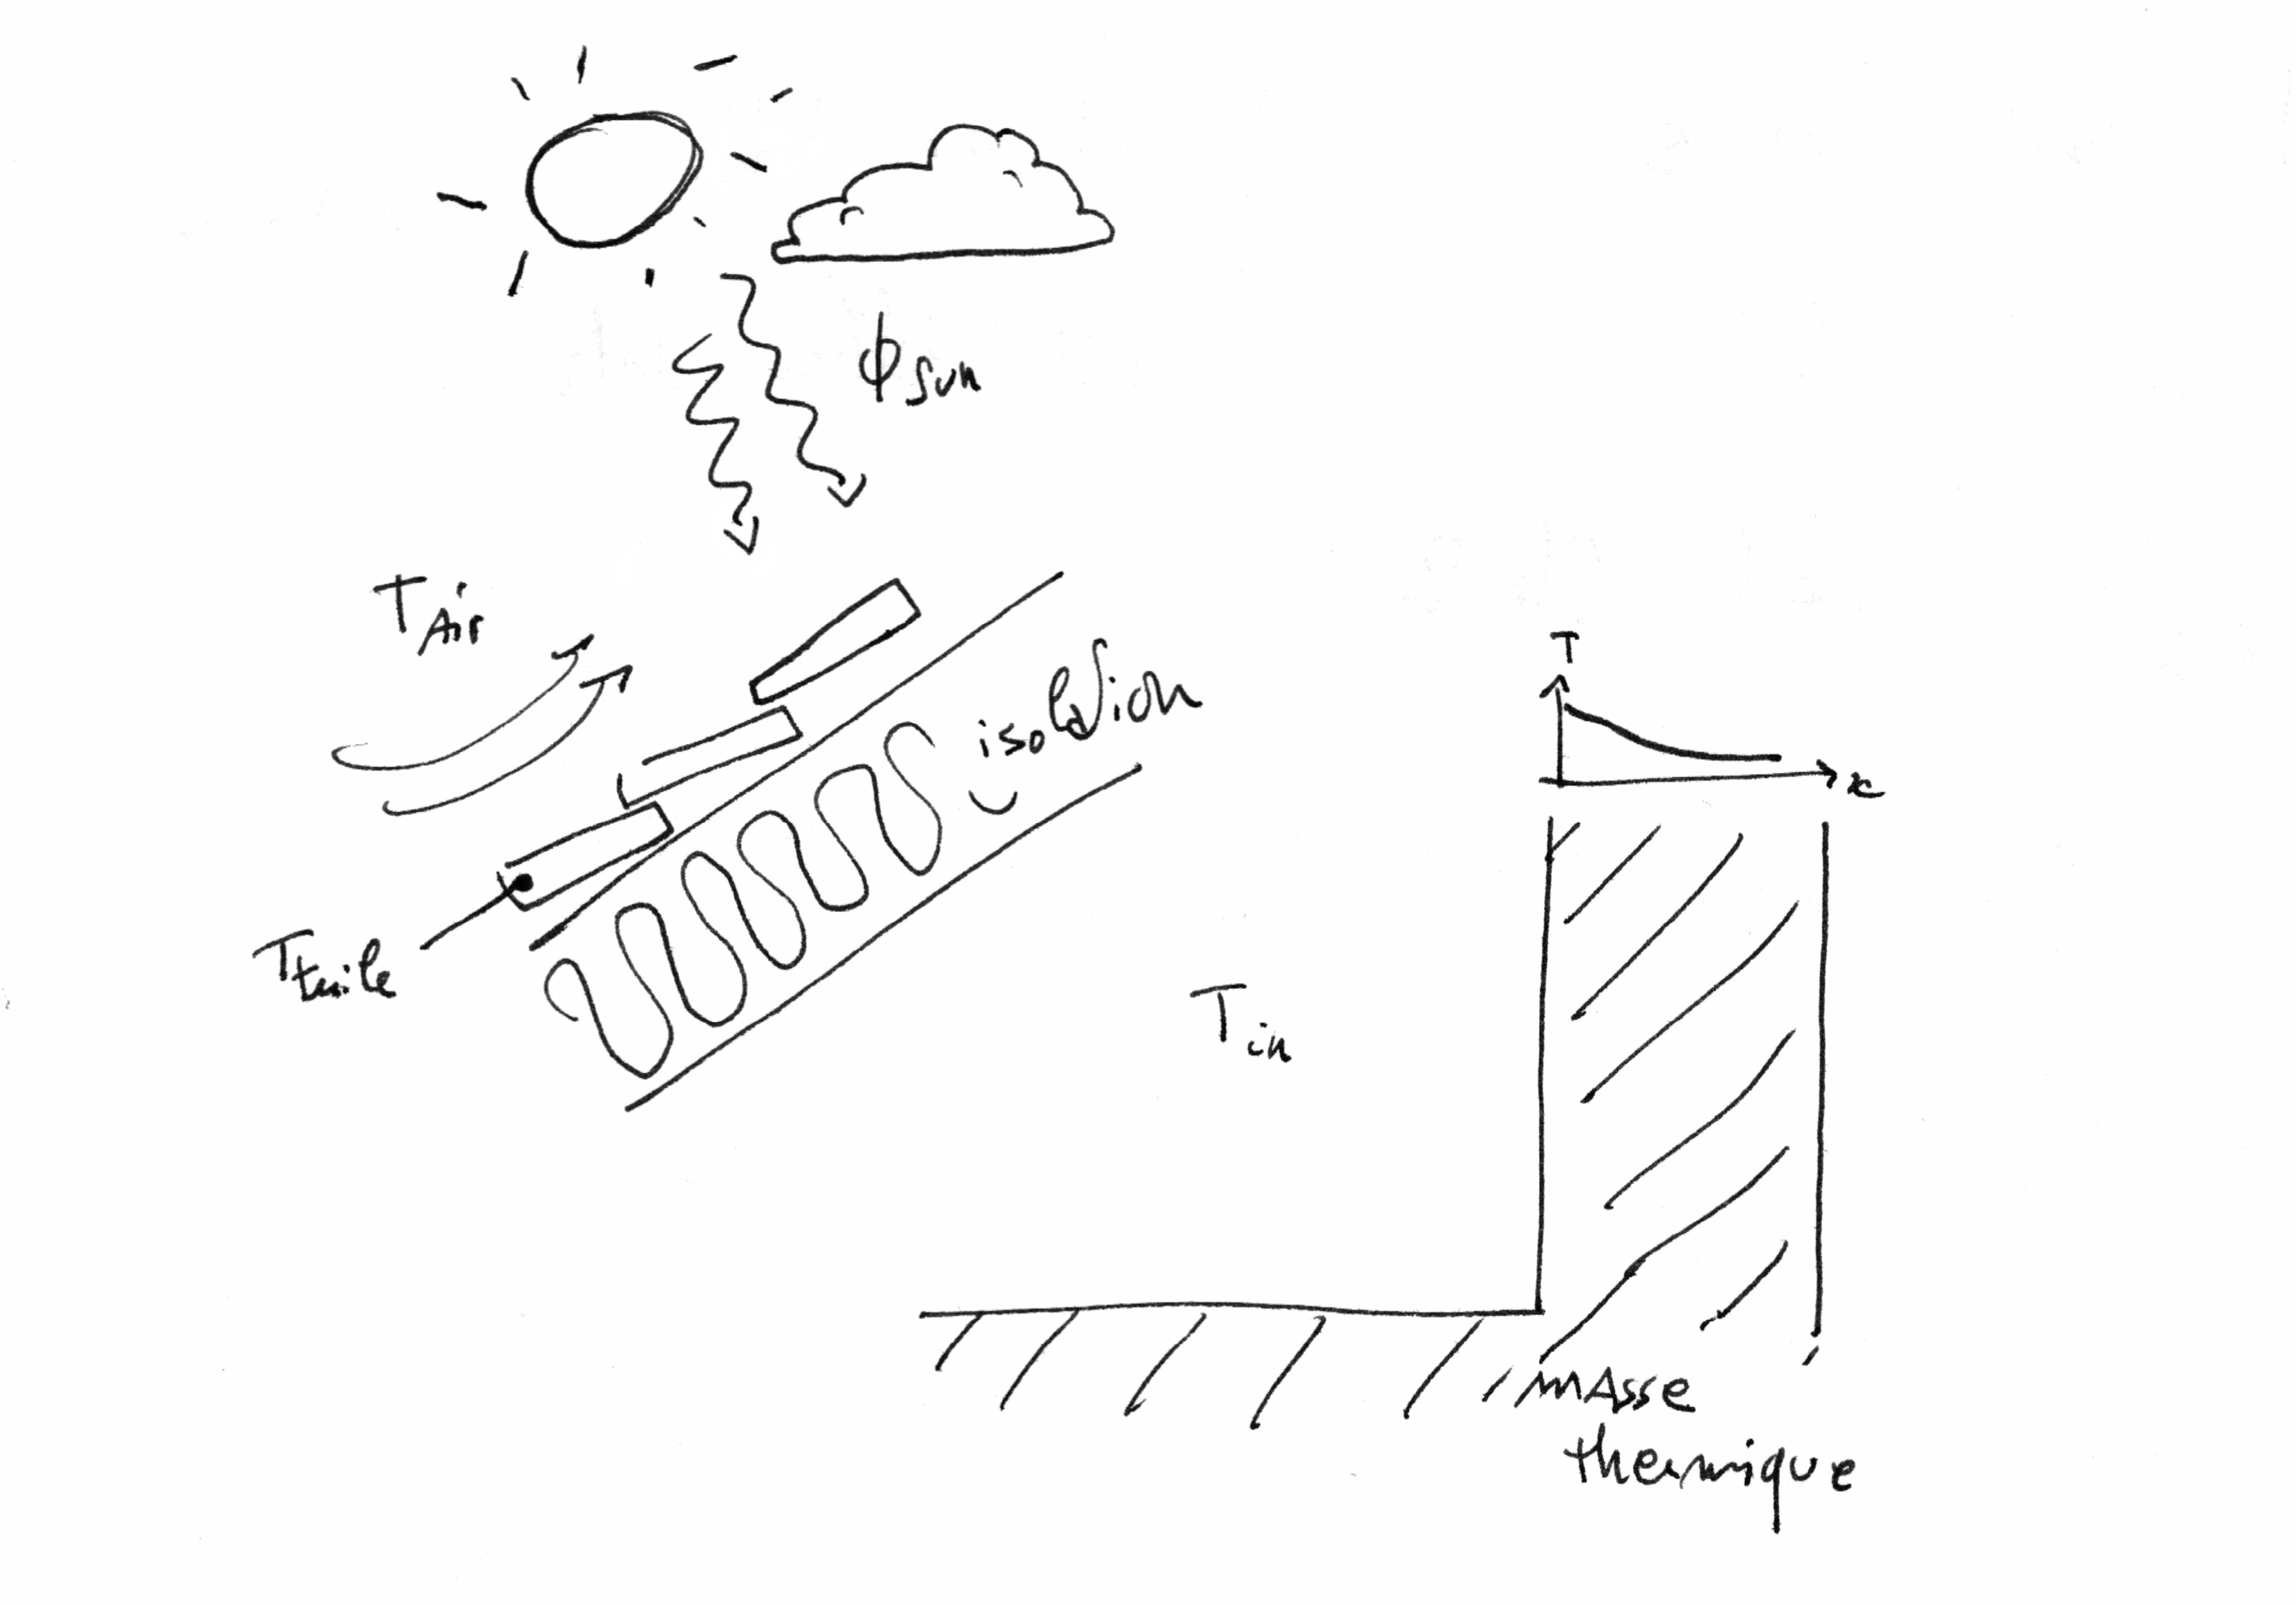 ϕsun
TAir
isolation
Ttuile
T
x
Tin
mAsse
thermique